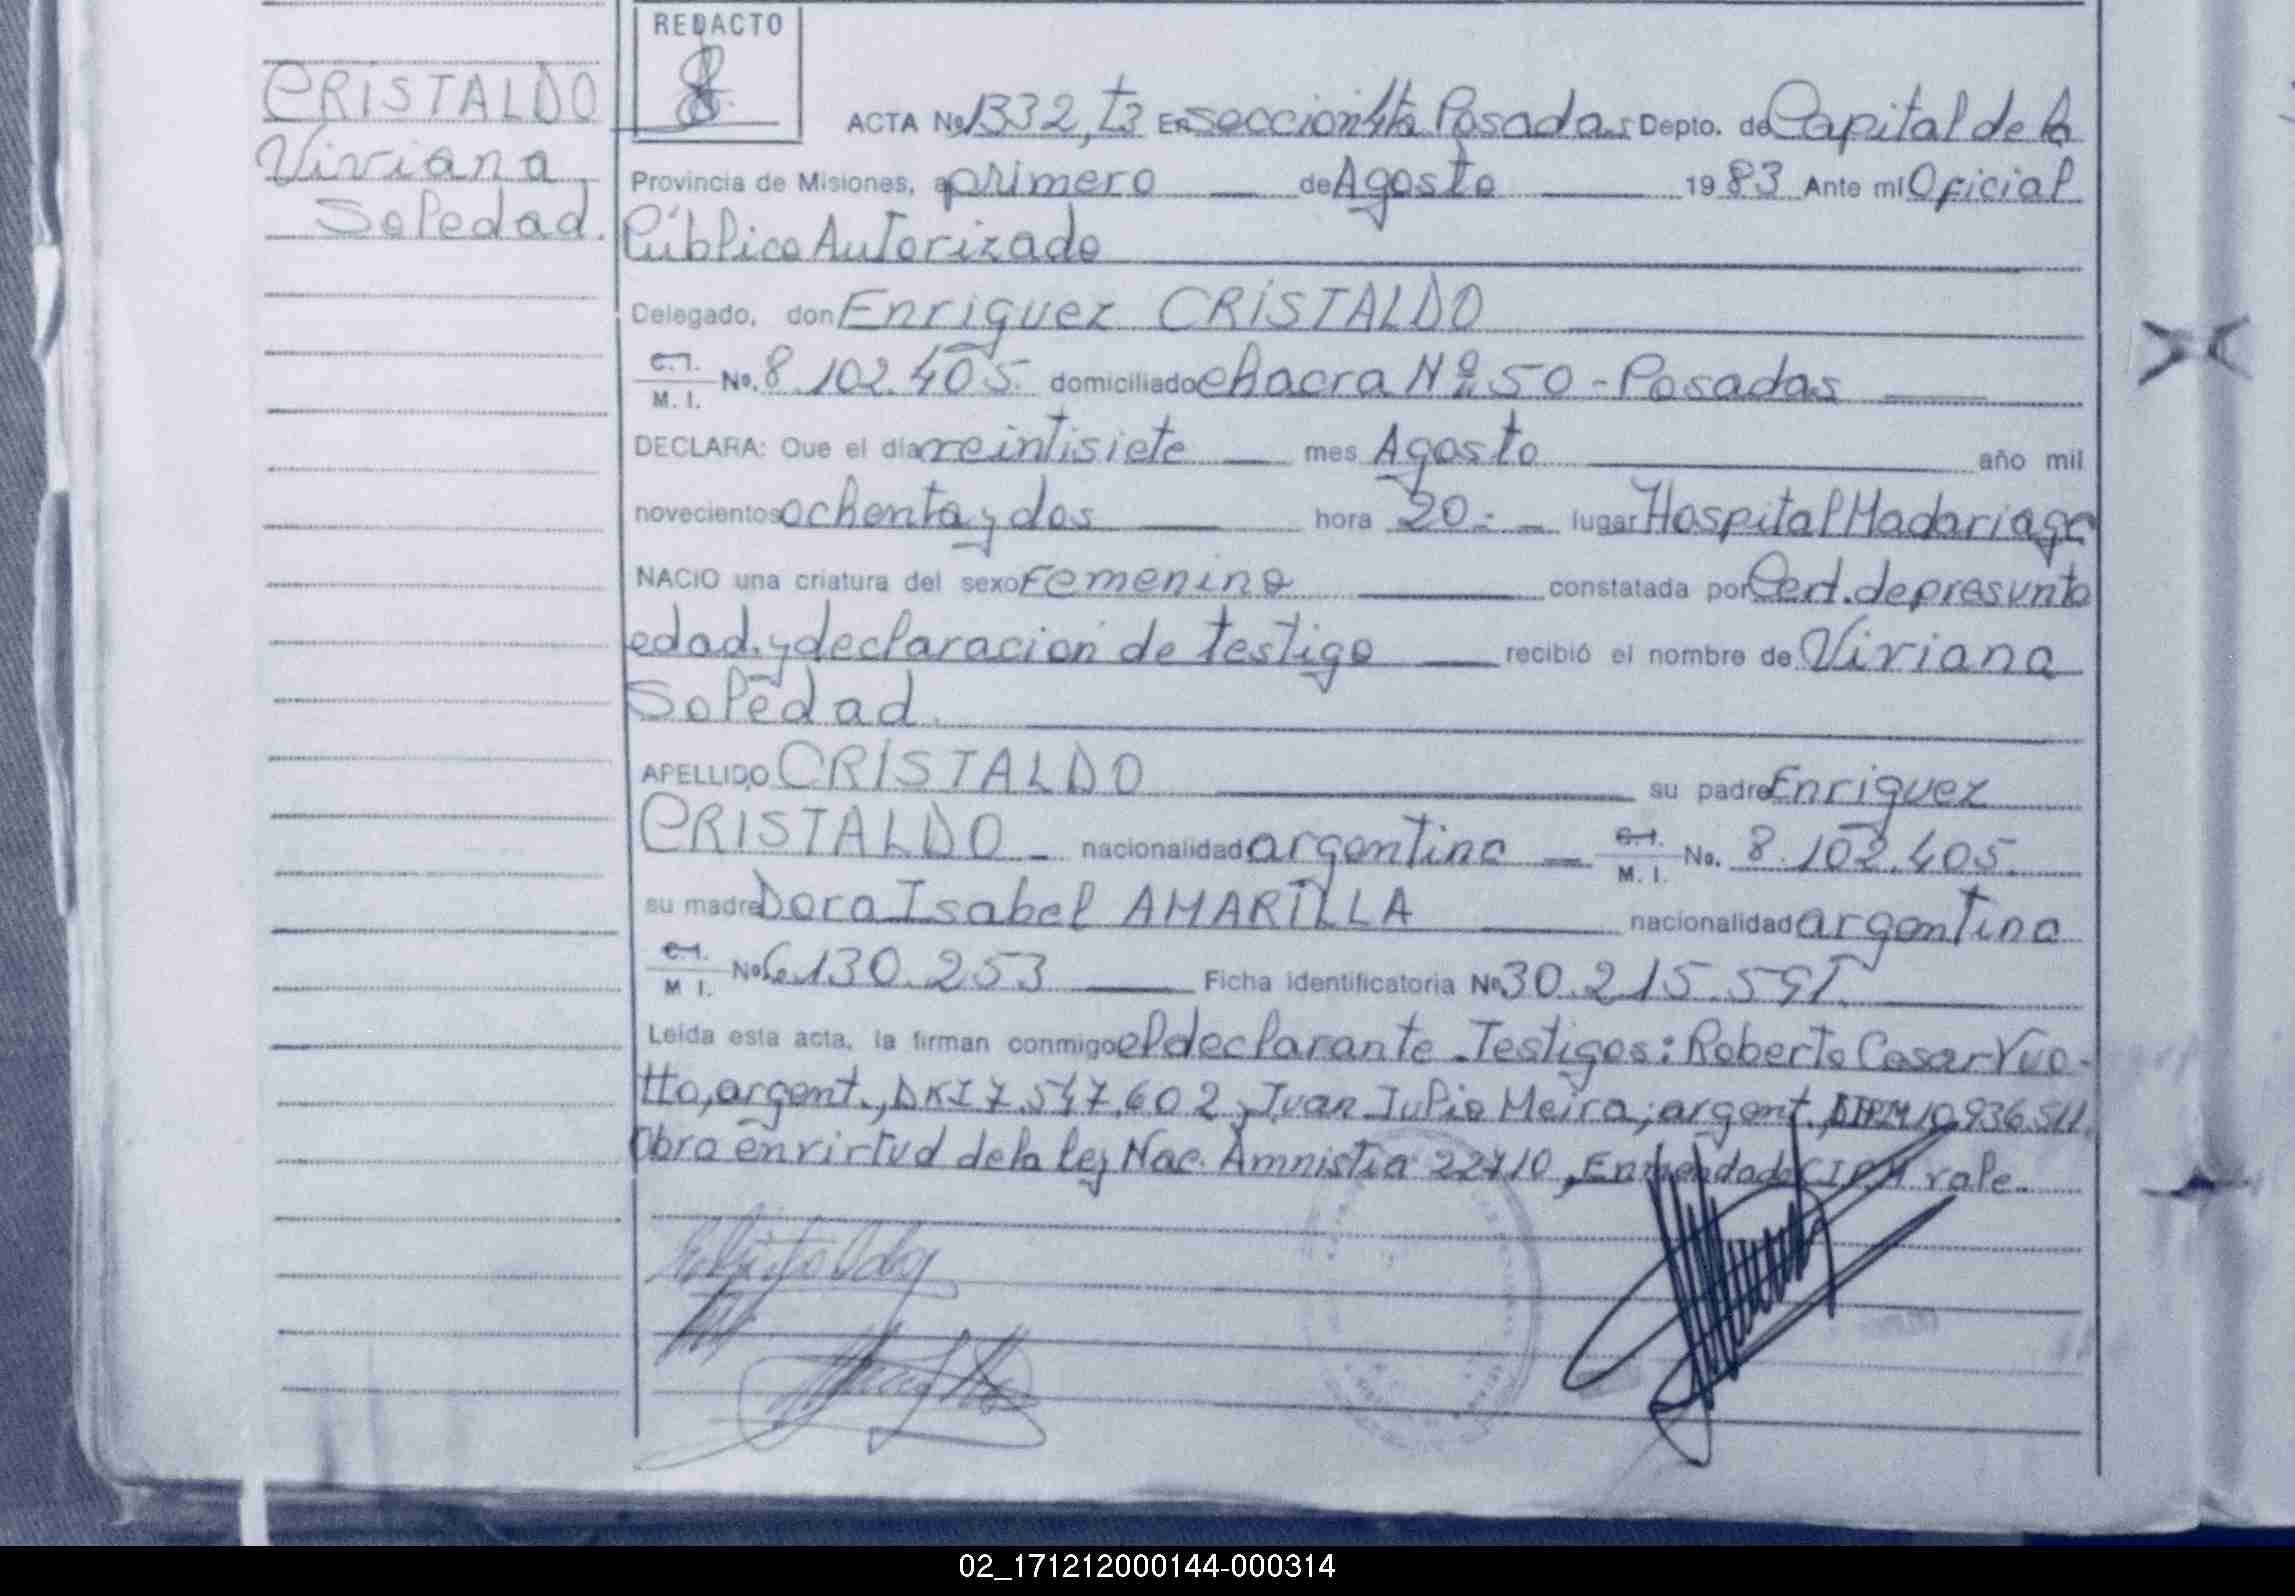 REDACTO
CRISTALDO
Viviana
Soledad.
ACTA Nº 1332, t3 En sección 4ta Posadas Depto. de Capital de la
Provincia de Misiones, a primero de Agosto 1983 Ante mí Oficial
Público Autorizado
Delegado, don Enriquez CRISTALDO
C.I. M.I. Nº. 8.102.405. domiciliado chacra Nº 50 - Posadas
DECLARA: Que el día veintisiete mes Agosto año mil
novecientos ochenta y dos hora 20.- lugar Hospital Madariaga
NACIO una criatura del sexo Femenino constatada por Cert. de presunta
edad. y declaración de testigo recibió el nombre de Viviana
Soledad.
APELLIDO CRISTALDO su padre Enriquez
CRISTALDO - nacionalidad argentina C.I. M.I. No. 8.102.405.
su madre Dora Isabel AMARILLA nacionalidad argentina
C.I. M I. Nº 6.130.253 Ficha identificatoria Nº 30.215.591.
Leída esta acta, la firman conmigo el declarante. Testigos: Roberto Cesar Vuo-
tto, argent., DNI 7.547.602 y Juan Julio Meira, argent., CIPM 10.936.511.
Obra en virtud de la ley Nac. Amnistia 22410, Enmendado CIPM vale.
02_171212000144-000314